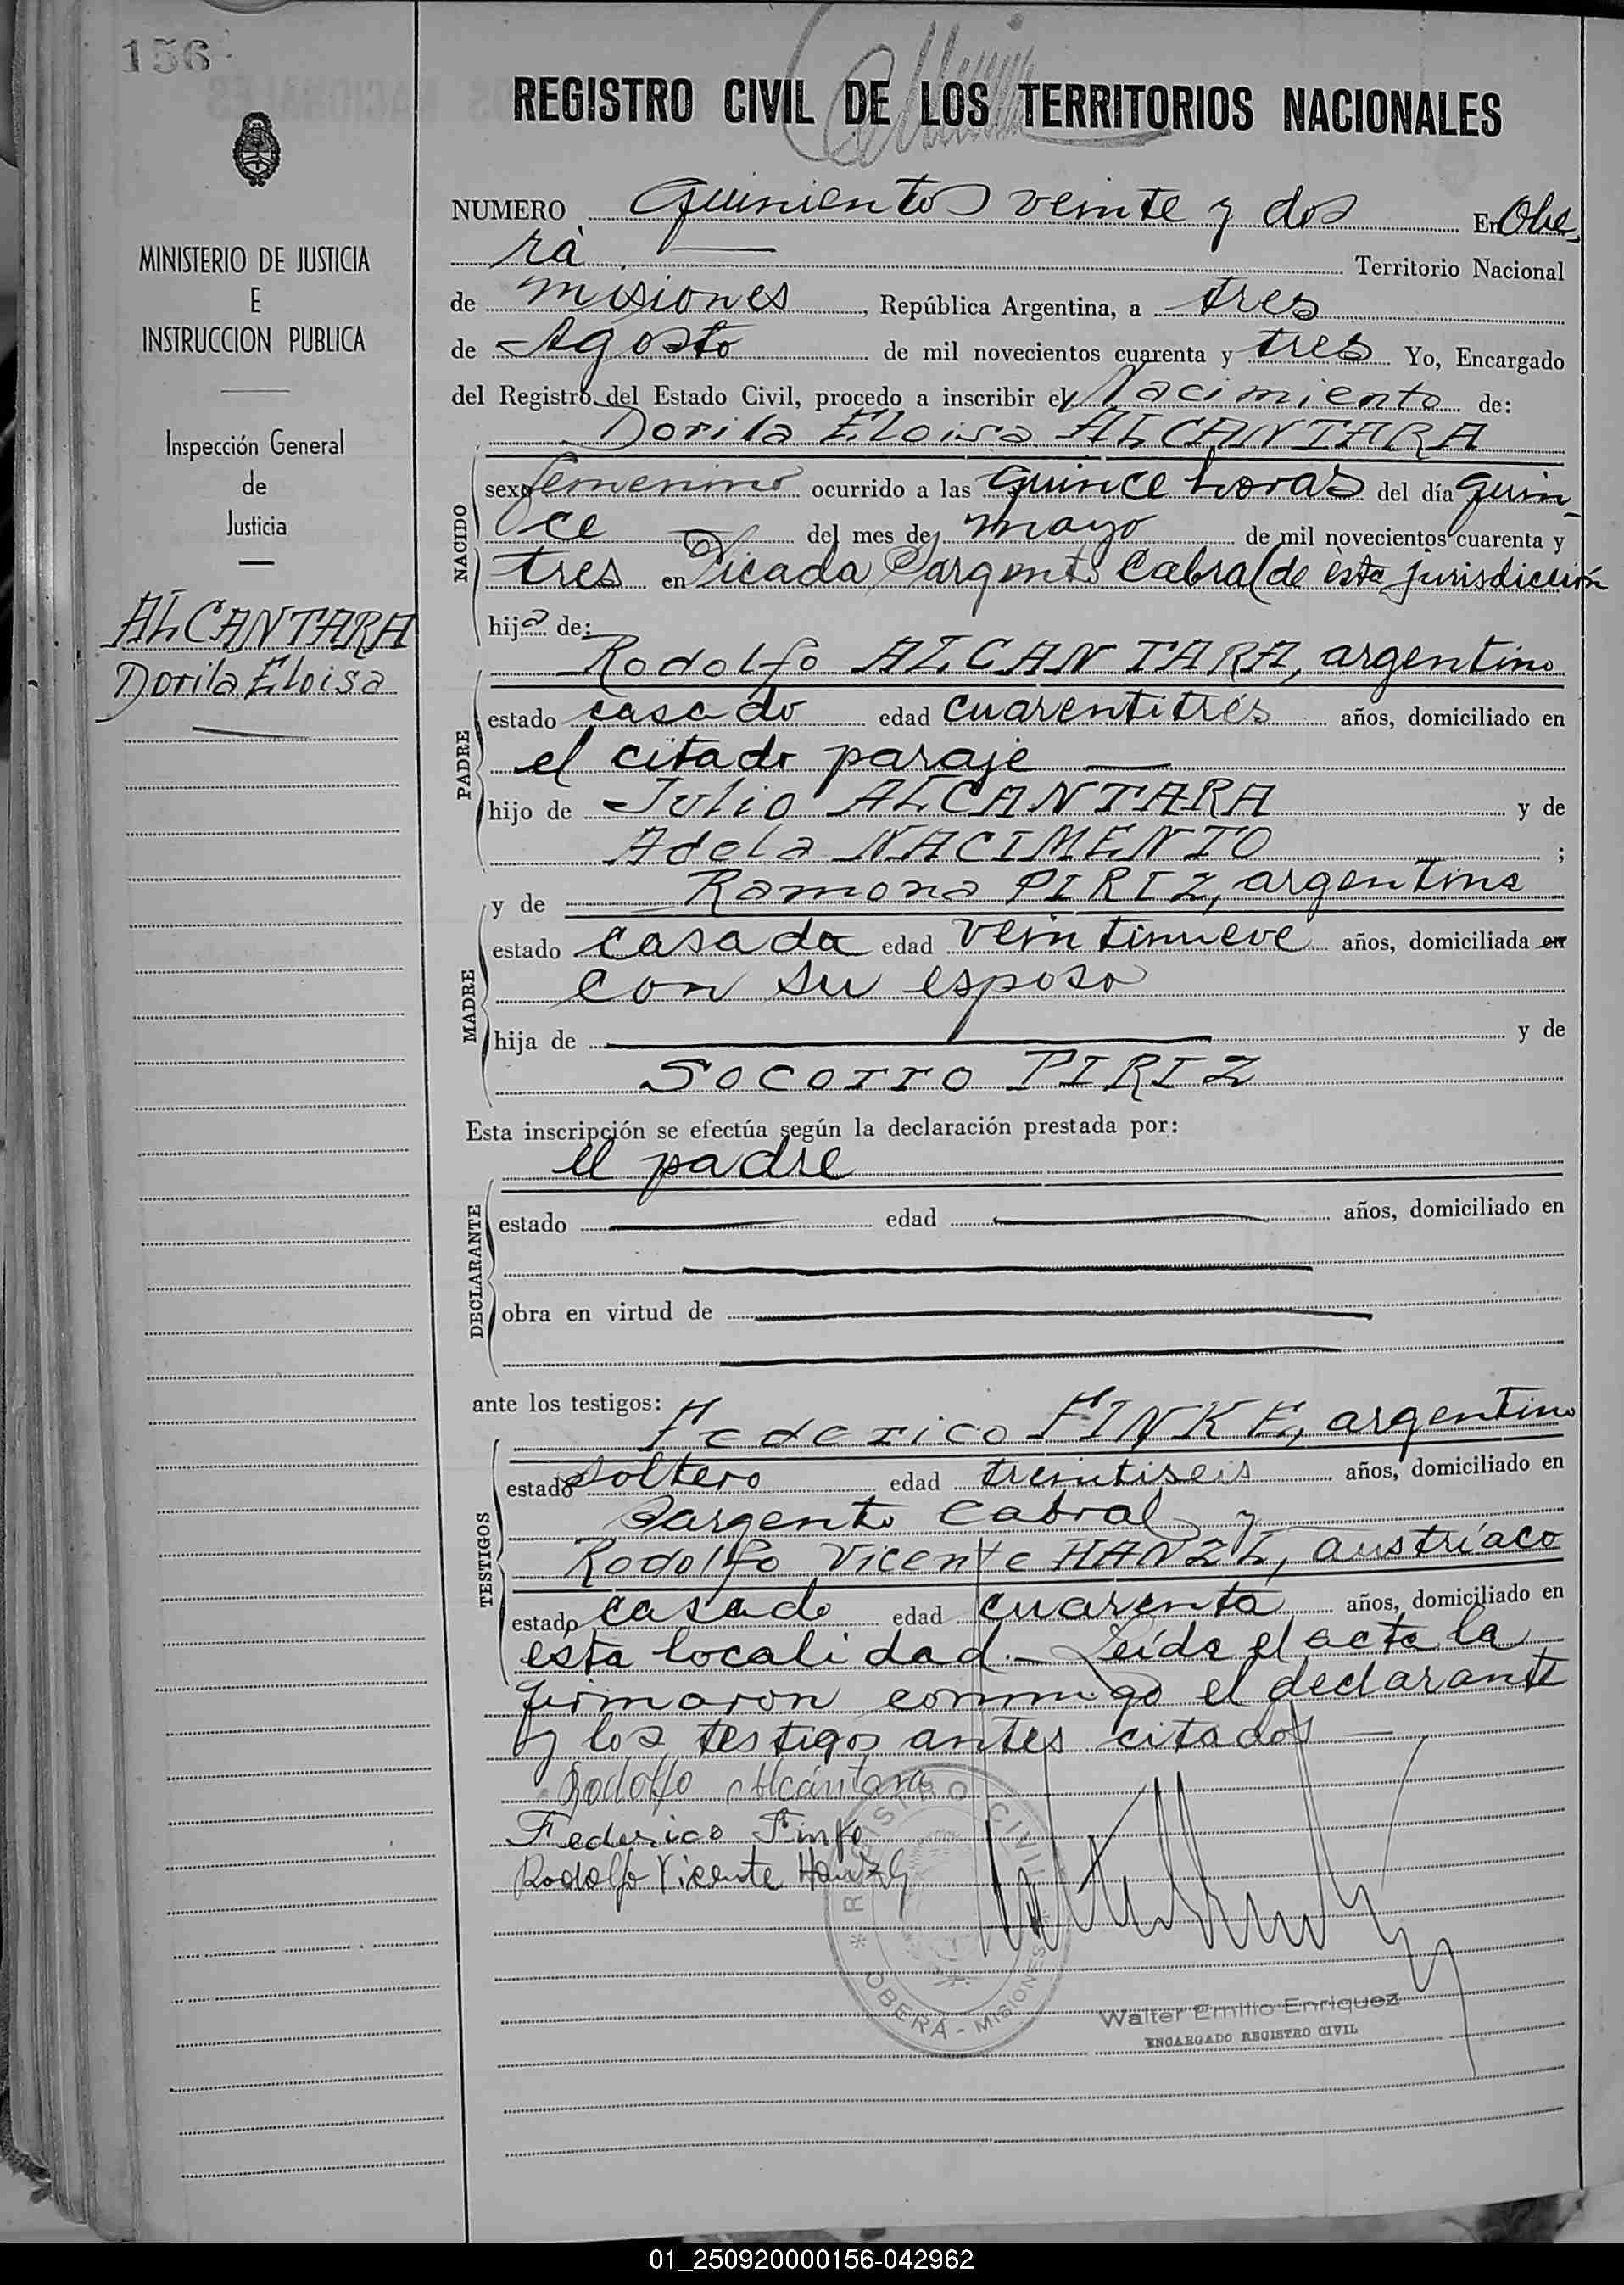 156
REGISTRO CIVIL DE LOS TERRITORIOS NACIONALES
MINISTERIO DE JUSTICIA
E
INSTRUCCION PUBLICA
Inspección General
de
Justicia
ALCANTARA
Dorila Eloisa
NUMERO quinientos veinte y dos En Obe
rà Territorio Nacional
de misiones, República Argentina, a tres
de Agosto de mil novecientos cuarenta y tres Yo, Encargado
del Registro del Estado Civil, procedo a inscribir el Nacimiento de:
Dorila Eloisa ALCANTARA
NACIDO
sexo femenino ocurrido a las quince horas del día quin
ce del mes de mayo de mil novecientos cuarenta y
tres en Picada Sargento Cabral de èsta jurisdicción
hija de:
PADRE
Rodolfo ALCANTARA, argentino
estado casado edad cuarentitrés años, domiciliado en
el citado paraje
hijo de Julio ALCANTARA y de
Adela NACIMENTO ;
MADRE
y de Ramona PIRIZ, argentina
estado casada edad veintinueve años, domiciliada en
con su esposo
hija de y de
Socorro PIRIZ
Esta inscripción se efectúa según la declaración prestada por:
el padre
DECLARANTE
estado edad años, domiciliado en
obra en virtud de
ante los testigos:
TESTIGOS
Federico FINKE, argentino
estado soltero edad treintiseis años, domiciliado en
Sargento Cabral y
Rodolfo Vicente HANZL, austríaco
estado casado edad cuarenta años, domiciliado en
esta localidad.- Leída el acta la
firmaron conmigo el declarante
y los testigos antes citados
Rodolfo Alcántara
Federico Finke
Rodolfo Vicente Hanzl
* REGISTRO CIVIL *
OBERA - MISIONES
Walter Emilio Enriquez
ENCARGADO REGISTRO CIVIL
01_250920000156-042962